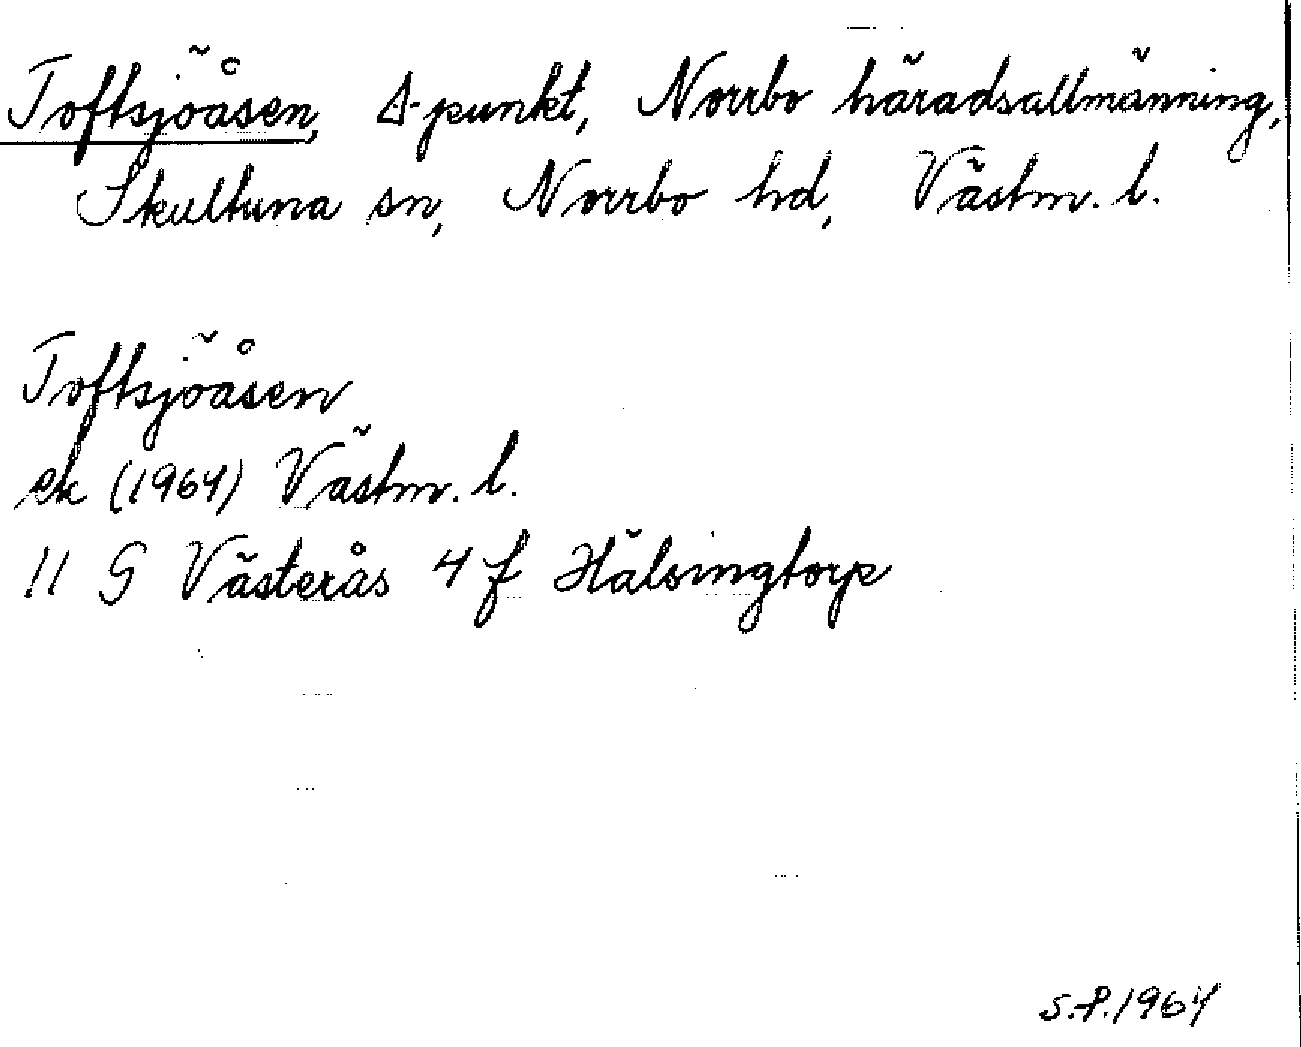 Toftsjöåsen, Δ-punkt, Norrbo häradsallmänning,
Skultuna sn, Norrbo hd, Västm. l.
Toftsjöåsen
ek (1964) Västm. l.
11 G Västerås 4 f Hälsingtorp
S.P. 1964